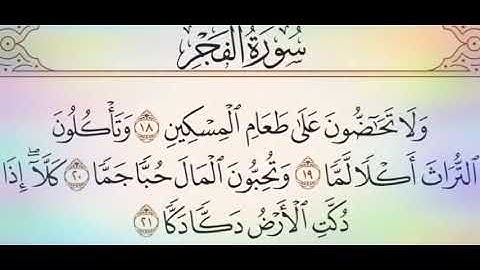 سُورَةُ الْفَجْرِ
وَلَا تَحَٰٓضُّونَ عَلَىٰ طَعَامِ الْمِسْكِينِ ١٨ وَتَأْكُلُونَ
التُّرَاثَ أَكْلًا لَّمًّا ١٩ وَتُحِبُّونَ الْمَالَ حُبًّا جَمًّا ٢٠ كَلَّآۖ إِذَا
دُكَّتِ الْأَرْضُ دَكًّا دَكًّا ٢١